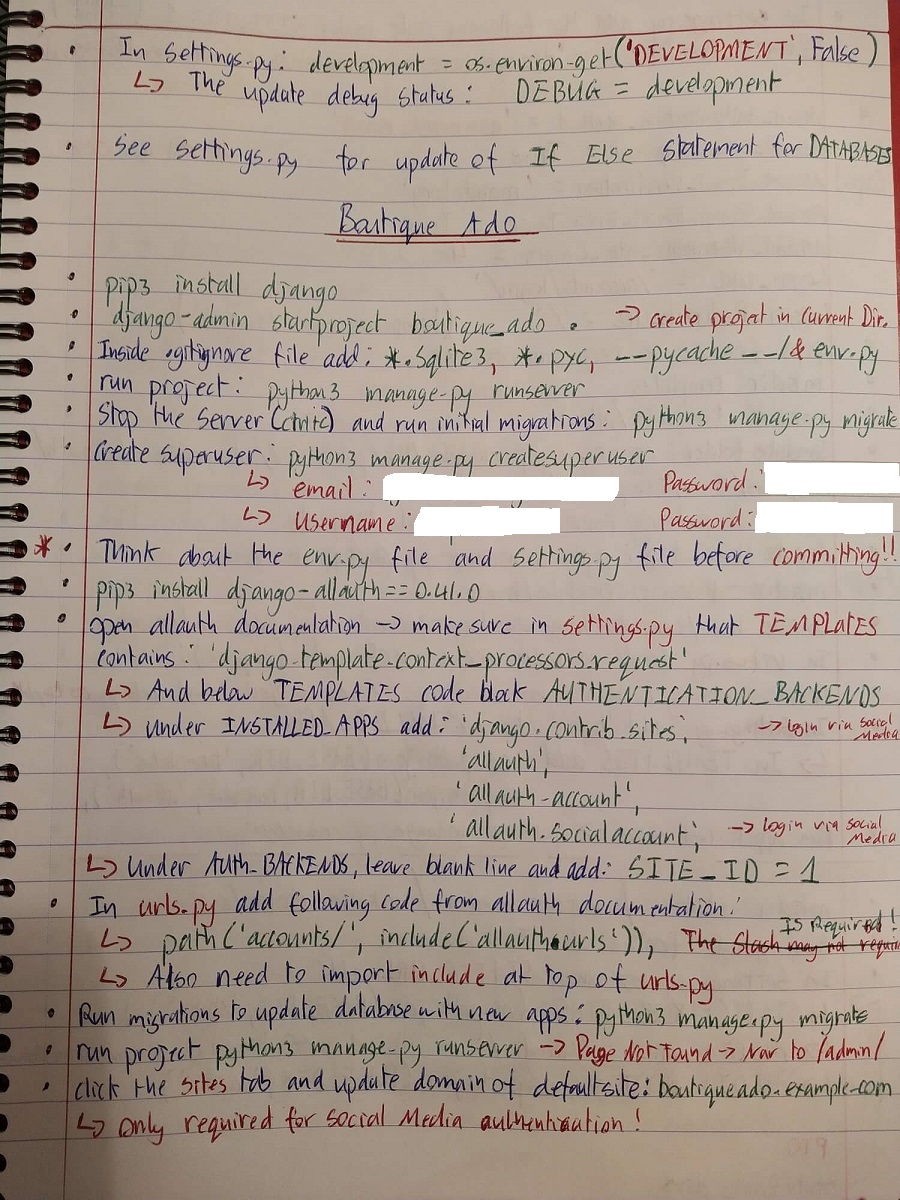 • In Settings.py: development = os.environ.get('DEVELOPMENT', False)
↳ The update debug status: DEBUG = development
• See settings.py for update of If Else statement for DATABASES
Boutique Ado
• pip3 install django
• django-admin startproject boutique_ado . → create project in Current Dir.
• Inside .gitignore file add: *.Sqlite3, *.pyc, --pycache--/ & env.py
• run project: python3 manage.py runserver
• Stop the Server (ctrl+c) and run initial migrations: python3 manage.py migrate
• Create superuser: python3 manage.py createsuperuser
↳ email: Password:
↳ Username: Password:
* • Think about the env.py file and settings.py file before committing!!
• pip3 install django-allauth==0.41.0
• Open allauth documentation → make sure in settings.py that TEMPLATES
contains: 'django.template.context_processors.request'
↳ And below TEMPLATES code block AUTHENTICATION_BACKENDS
↳ Under INSTALLED_APPS add: 'django.contrib.sites', → login via Social Media
'allauth',
'allauth.account',
'allauth.socialaccount', → Login via Social Media
↳ Under AUTH_BACKENDS, leave blank line and add: SITE_ID = 1
• In urls.py add following code from allauth documentation:
↳ path('accounts/', include('allauth.urls')), The Slash may not require IS Required!
↳ Also need to import include at top of urls.py
• Run migrations to update database with new apps: python3 manage.py migrate
• run project python3 manage.py runserver → Page Not Found → Nav to /admin/
• click the sites tab and update domain of default site: boutiqueado.example.com
↳ Only required for Social Media authentication!